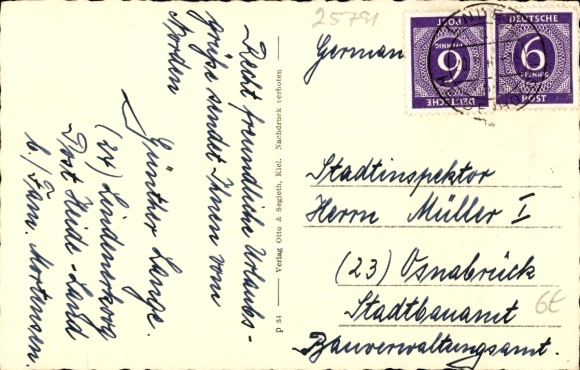 Recht freundliche Urlaubs-
grüße sendet Ihnen vom
Norden
Günther Lange.
(24) Lindenerkoog
Post Heide-Land
b/ Fam. Mortensen.
P 84 Verlag Otto & Segieth, Kiel. Nachdruck verboten
25791
German
DEUTSCHE
6
PFENNIG
POST
DEUTSCHE
6
PFENNIG
POST
Stadtinspektor
Herrn Müller I
(23) Osnabrück
Stadtbauamt
Bauverwaltungsamt.
6€